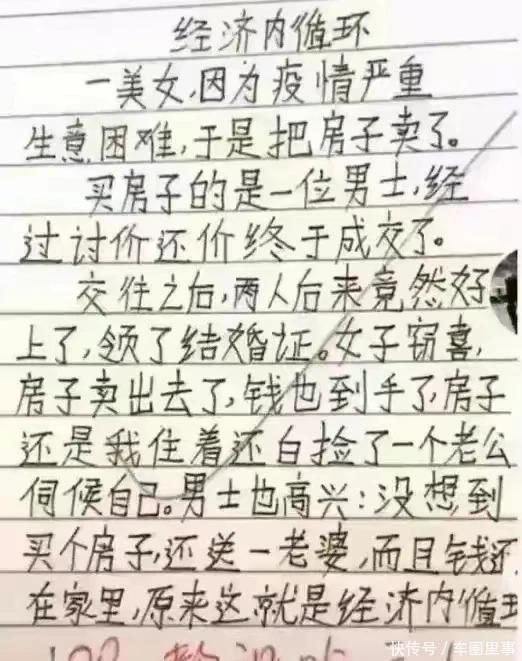 经济内循环
一美女,因为疫情严重
生意困难,于是把房子卖了。
买房子的是一位男士,经
过讨价还价终于成交了。
交往之后,两人后来竟然好
上了,领了结婚证。女子窃喜,
房子卖出去了,钱也到手了,房子
还是我住着还白捡了一个老公
伺候自己。男士也高兴:没想到
买个房子,还送一老婆,而且钱还
在家里,原来这就是经济内循环
快传号/车圈里事